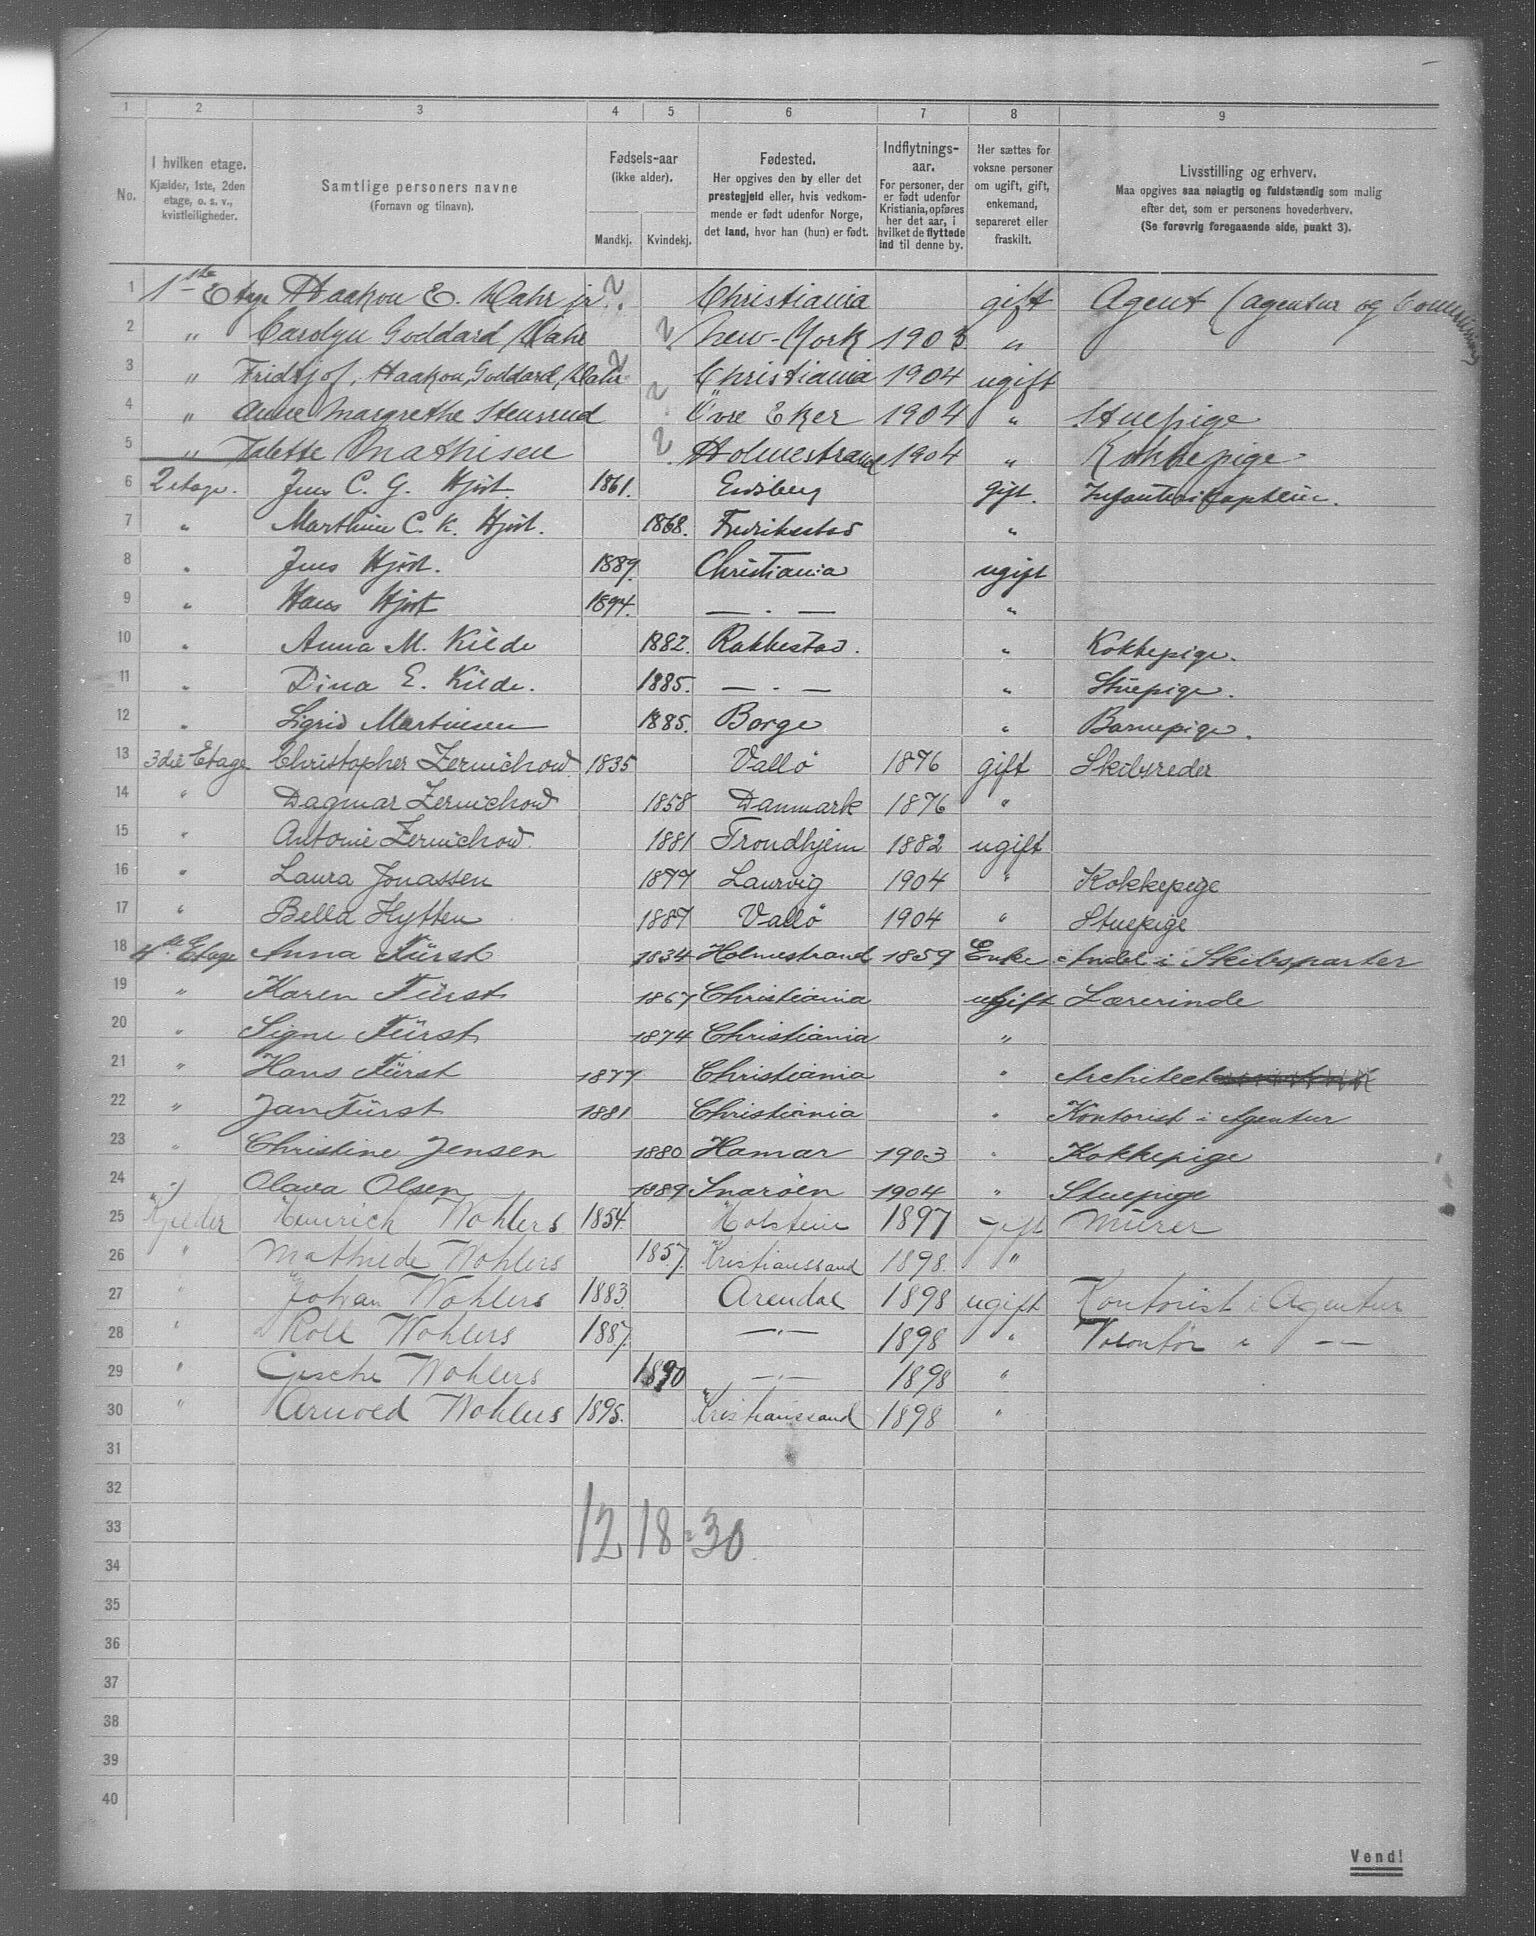 1 2 3 4 5 6 7 8 9
No.
I hvilken etage.
Kjælder, 1ste, 2den
etage, o. s. v.,
kvistleiligheder.
Samtlige personers navne
(Fornavn og tilnavn).
Fødsels-aar
(ikke alder).
Mandkj. Kvindekj.
Fødested.
Her opgives den by eller det
prestegjeld eller, hvis vedkom-
mende er født udenfor Norge,
det land, hvor han (hun) er født.
Indflytnings-
aar.
For personer, der
er født udenfor
Kristiania, opføres
her det aar, i
hvilket de flyttede
ind til denne by.
Her sættes for
voksne personer
om ugift, gift,
enkemand,
separeret eller
fraskilt.
Livsstilling og erhverv.
Maa opgives saa nøiagtig og fuldstændig som mulig
efter det, som er personens hovederhverv.
(Se forøvrig foregaaende side, punkt 3).
1 1ste Etage Haakon E. Dahr jr ? Christiania gift Agent (agentur og
2 " Carolyn Goddard Dahr ? New-York 1903 "
3 " Fridtjof, Haakon, Goddard, Dahr ? Christiania 1904 ugift
4 " Anne Margrethe Stensrud ? Övre Eker 1904 " Stuepige
5 " Mathisen ? Holmestrand 1904 " Kokkepige
6 2 etage. Jens C. G. Hjort. 1861. Eidsberg gift. Infanterikaptein.
7 " Marthine C. K. Hjort. 1868. Fredrikstad "
8 " Jens Hjort. 1889. Christiania ugift
9 " Hans Hjort 1894. — . — "
10 " Anna M. Kilde 1882. Rakkestad. " Kokkepige.
11 " Dina E. Kilde. 1885. — . — " Stuepige.
12 " Sigrid Martinsen 1885. Borge " Barnepige.
13 3die Etage Christopher Zernichow. 1835 Vallö 1876 gift Skibsreder
14 " Dagmar Zernichow 1858 Danmark 1876 "
15 " Antonie Zernichow. 1881 Trondhjem 1882 ugift
16 " Laura Jonassen 1877 Laurvig 1904 " Kokkepige
17 " Bella Hytten 1887 Vallö 1904 " Stuepige
18 4de Etage Anna Fürst 1834 Holmestrand 1859 Enke Andel i Skibsparter
19 " Karen Fürst 1867 Christiania ugift Lærerinde
20 " Signe Fürst 1874 Christiania "
21 " Hans Fürst 1877 Christiania " Architect
22 " Jan Fürst 1881 Christiania " Kontorist i Agentur
23 " Christine Jensen 1880 Hamar 1903 " Kokkepige
24 " Olava Olsen 1889 Snaröen 1904 " Stuepige
25 Kjelder Heinrich Wohlers 1854. Holstein 1897 gift Mürer
26 " Mathilde Wohlers 1857. Kristianssand 1898. "
27 " Johan Wohlers 1883. Arendal 1898 ugift Kontorist i Agentur
28 " Rolf Wohlers 1887. —"— 1898 " Volontör i — —
29 " Gesche Wohlers 1890 —"— 1898 "
30 " Arnold Wohlers 1895. Kristianssand 1898 "
31
32
33 12 18 = 30
34
35
36
37
38
39
40
Vend!